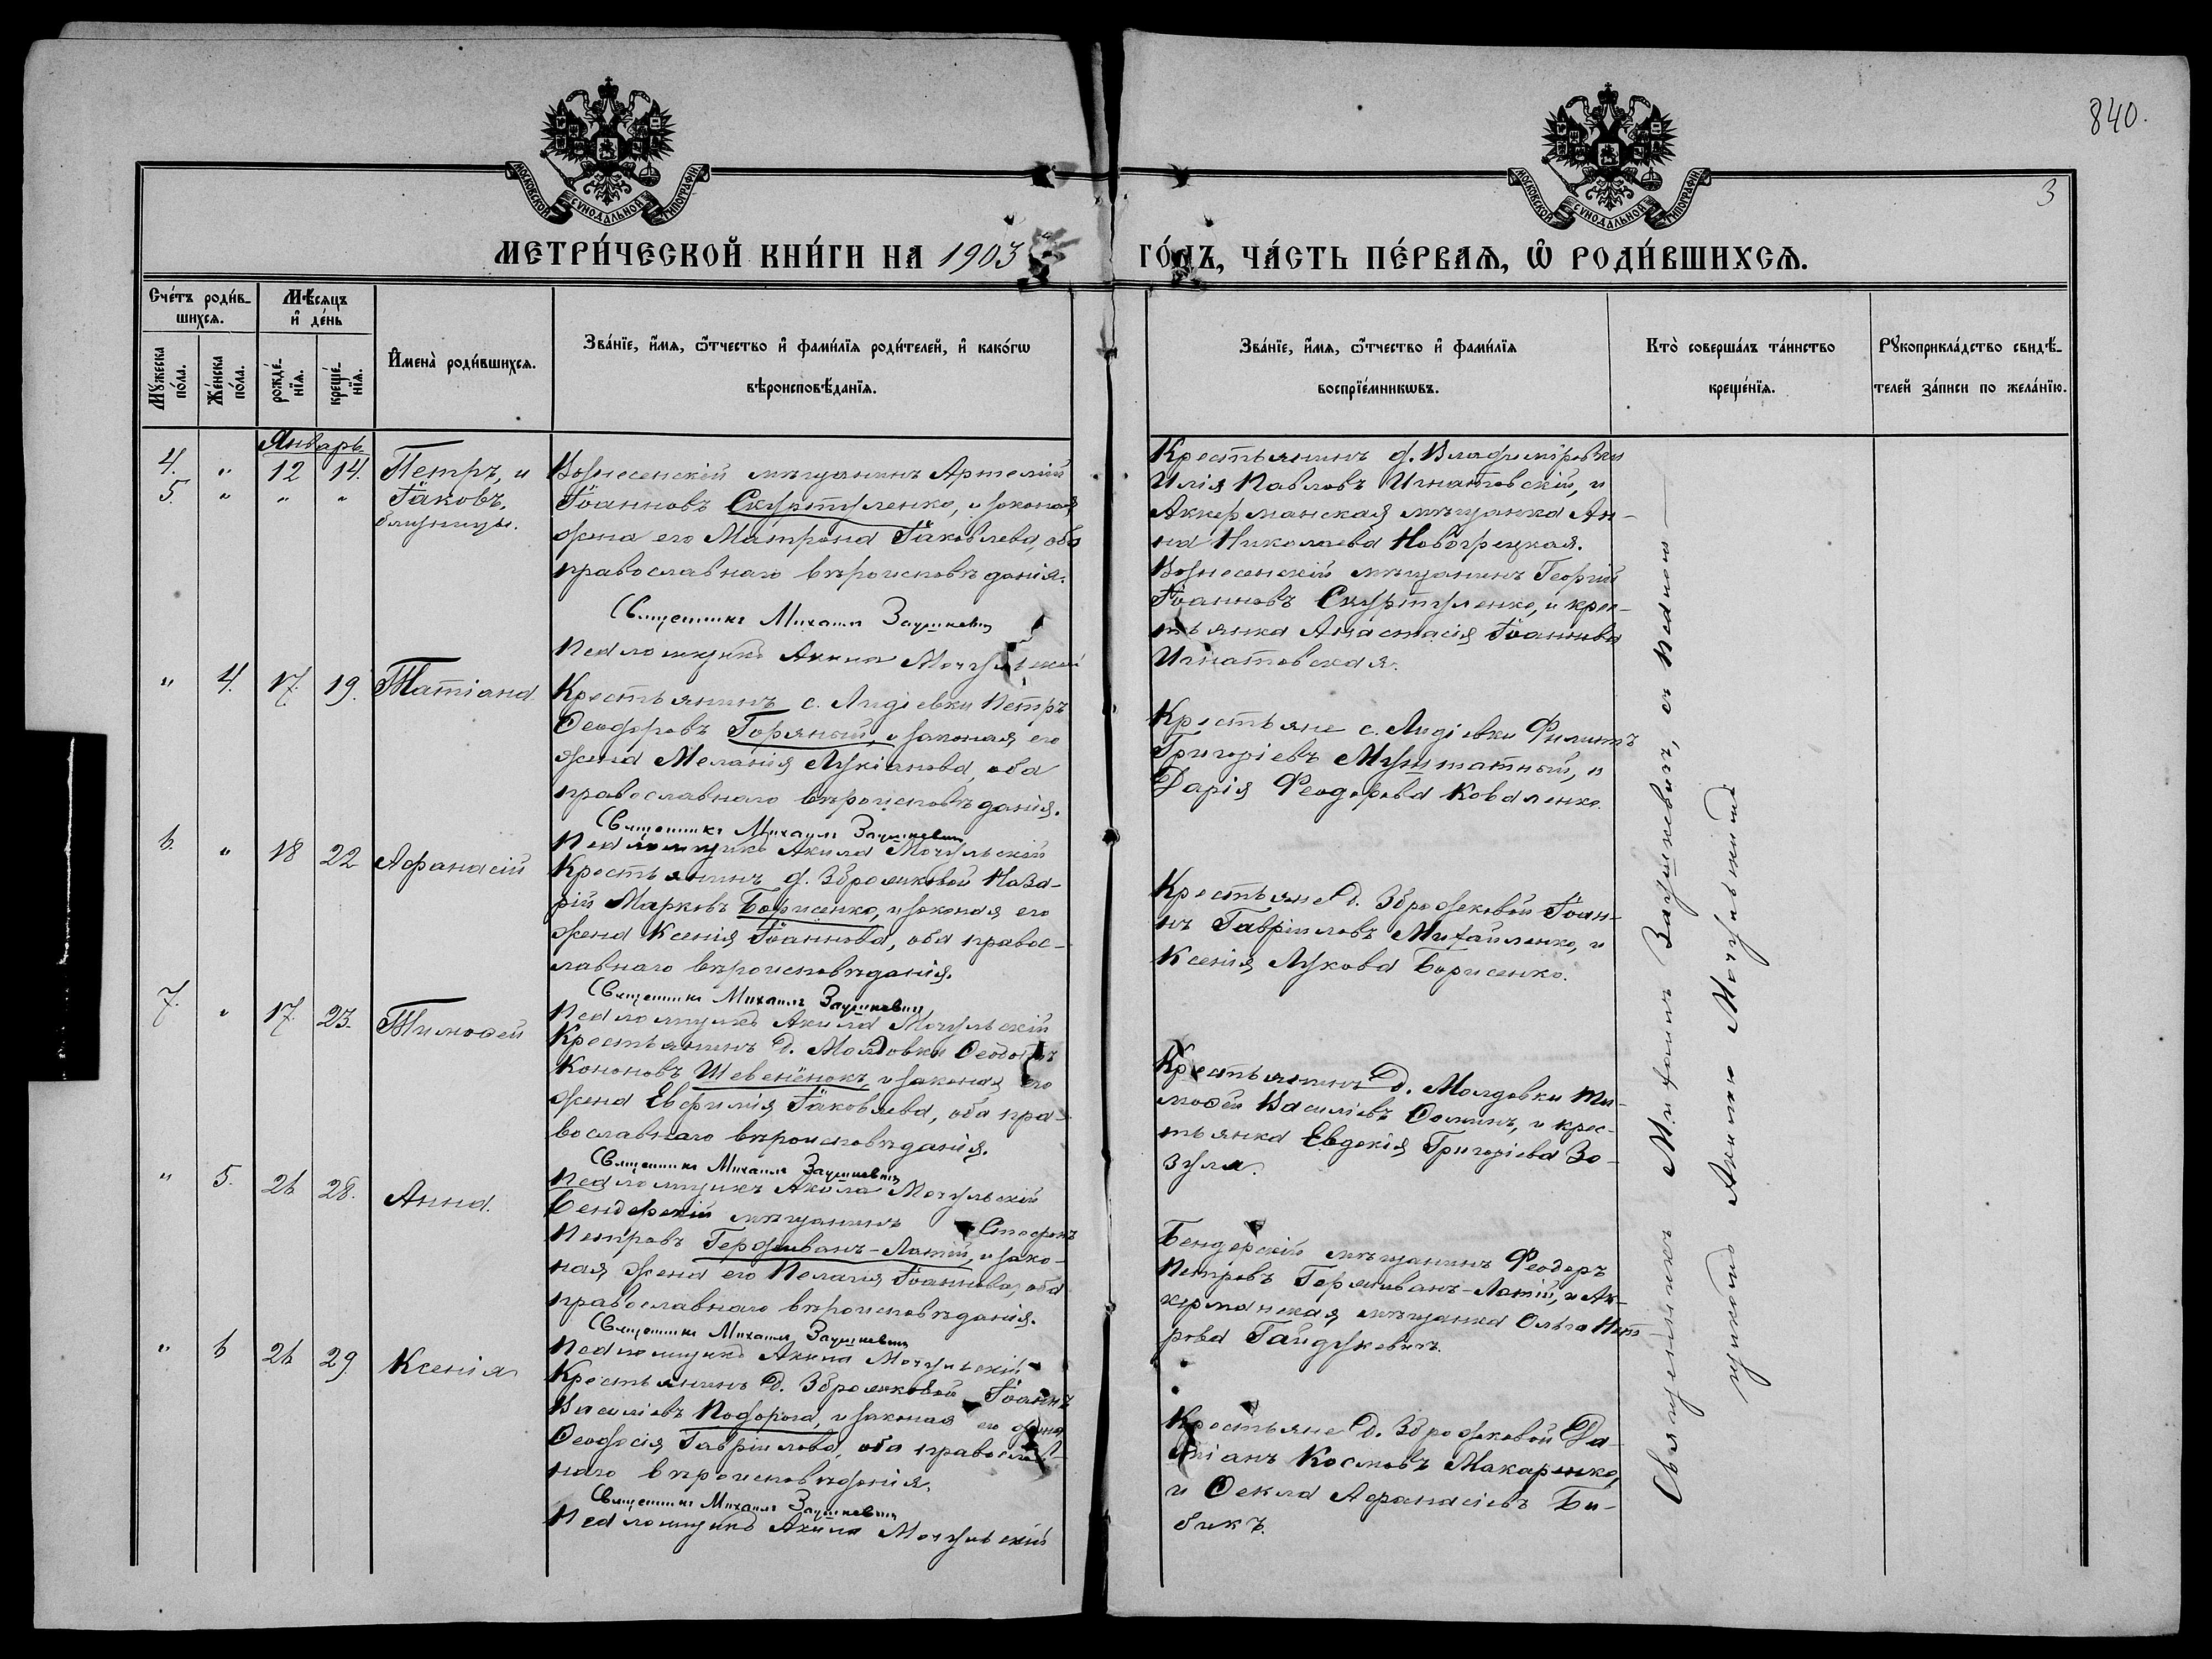 840.
3
МОСКОВСКОЙ СУНОДАЛЬНОЙ ТИПОГРАФІИ
МОСКОВСКОЙ СУНОДАЛЬНОЙ ТИПОГРАФІИ
МЕТРИ́ЧЕСКОЙ КНИ́ГИ НА 1903 ГО́ДЪ, ЧА́СТЬ ПЕ́РВАѦ, Ѡ҆ РОДИ́ВШИХСѦ.
Сче́тъ роди́в-
шихсѧ.
Мѣ́сяцъ
и҆ де́нь
Мꙋ́жеска
по́ла.
Же́нска
по́ла.
рожде́-
нїѧ.
креще́-
нїѧ.
И҆мена̀ роди́вшихсѧ.
Зва́нїе, и҆́мѧ, ѻ҆́тчество и҆ фами́лїѧ роди́телей, и҆ како́гѡ
вѣроисповѣ́данїѧ.
Зва́нїе, и҆́мѧ, ѻ҆́тчество и҆ фами́лїѧ
воспрїе́мникѡвъ.
Кто̀ соверша́лъ та́инство
креще́нїѧ.
Рꙋкоприкла́дство свидѣ́-
телей за́писи по жела́нїю.
Январь
4. " 12 14. Петръ, и
5. " " " Іаковъ,
близнецы.
Вознесенскій мѣщанинъ Артемій
Іоанновъ Скуртуленко, и законая
жена его Матрона Іаковлева, оба
православнаго вѣроисповѣданія.
Священникъ Михаилъ Заушкевич
Псаломщикъ Акила Мочульскій
Крестьянинъ д. Владимировки
Илія Павловъ Игнатовскій, и
Аккерманская мѣщанка Ан-
на Николаева Новогрецкая.
Вознесенскій мѣщанинъ Георгій
Іоанновъ Скуртуленко, и крес-
тьянка Анастасія Іоаннова
Игнатовская.
" 4. 17. 19. Татіана
Крестьянинъ с. Лидіевки Петръ
Ѳеодоровъ Горяный, и законая его
жена Меланія Лукіанова, оба
православнаго вѣроисповѣданія.
Священникъ Михаилъ Заушкевич
Псаломщикъ Акила Мочульскій
Крестьяне с. Лидіевки Филиппъ
Григоріевъ Мушматный, и
Дарія Феодорова Коваленко.
6. " 18 22 Афанасій
Крестьянинъ д. Зброжковой Наза-
рій Марковъ Борисенко, и законая его
жена Ксенія Іоаннова, оба правос-
лавнаго вѣроисповѣданія.
Священникъ Михаилъ Заушкевич
Псаломщикъ Акила Мочульскій
Крестьяне д. Зброжковой Іоан-
нъ Гавріиловъ Михайленко, и
Ксенія Лукова Борисенко.
7. " 17. 23. Тимофей
Крестьянинъ д. Молдовки Ѳеодотъ
Кононовъ Шевенёнокъ, и законая его
жена Евфимія Іаковлева, оба пра-
вославнаго вѣроисповѣданія.
Священникъ Михаилъ Заушкевич
Псаломщикъ Акила Мочульскій
Крестьянинъ д. Молдовки Ти-
мофей Василіевъ Ѳоминъ, и крес-
тьянка Евдокія Григоріева Зо-
зуля.
" 5. 26 28. Анна.
Бендерскій мѣщанинъ Стефанъ
Петровъ Герживанъ-Латій, и зако-
ная жена его Пелагія Іоаннова, оба
православнаго вѣроисповѣданія.
Священникъ Михаилъ Заушкевич
Псаломщикъ Акила Мочульскій
Бендерскій мѣщанинъ Феодоръ
Петровъ Герживанъ-Латій, и Ак-
керманская мѣщанка Ольга Пет-
рова Гайдукевичъ.
" 6 26 29. Ксенія
Крестьянинъ д. Зброжковой Іоаннъ
Василіевъ Подорога, и законая его жена
Ѳеодосія Гавріилова, оба православ-
наго вѣроисповѣданія.
Священникъ Михаилъ Заушкевич
Псаломщикъ Акила Мочульскій
Крестьяне д. Зброжковой Да-
міанъ Космовъ Макаренко,
и Ѳекла Афанасіевъ Би-
бикъ.
Священникъ Михаилъ Заушкевичъ, съ псалом-
щикомъ Акилою Мочульскимъ